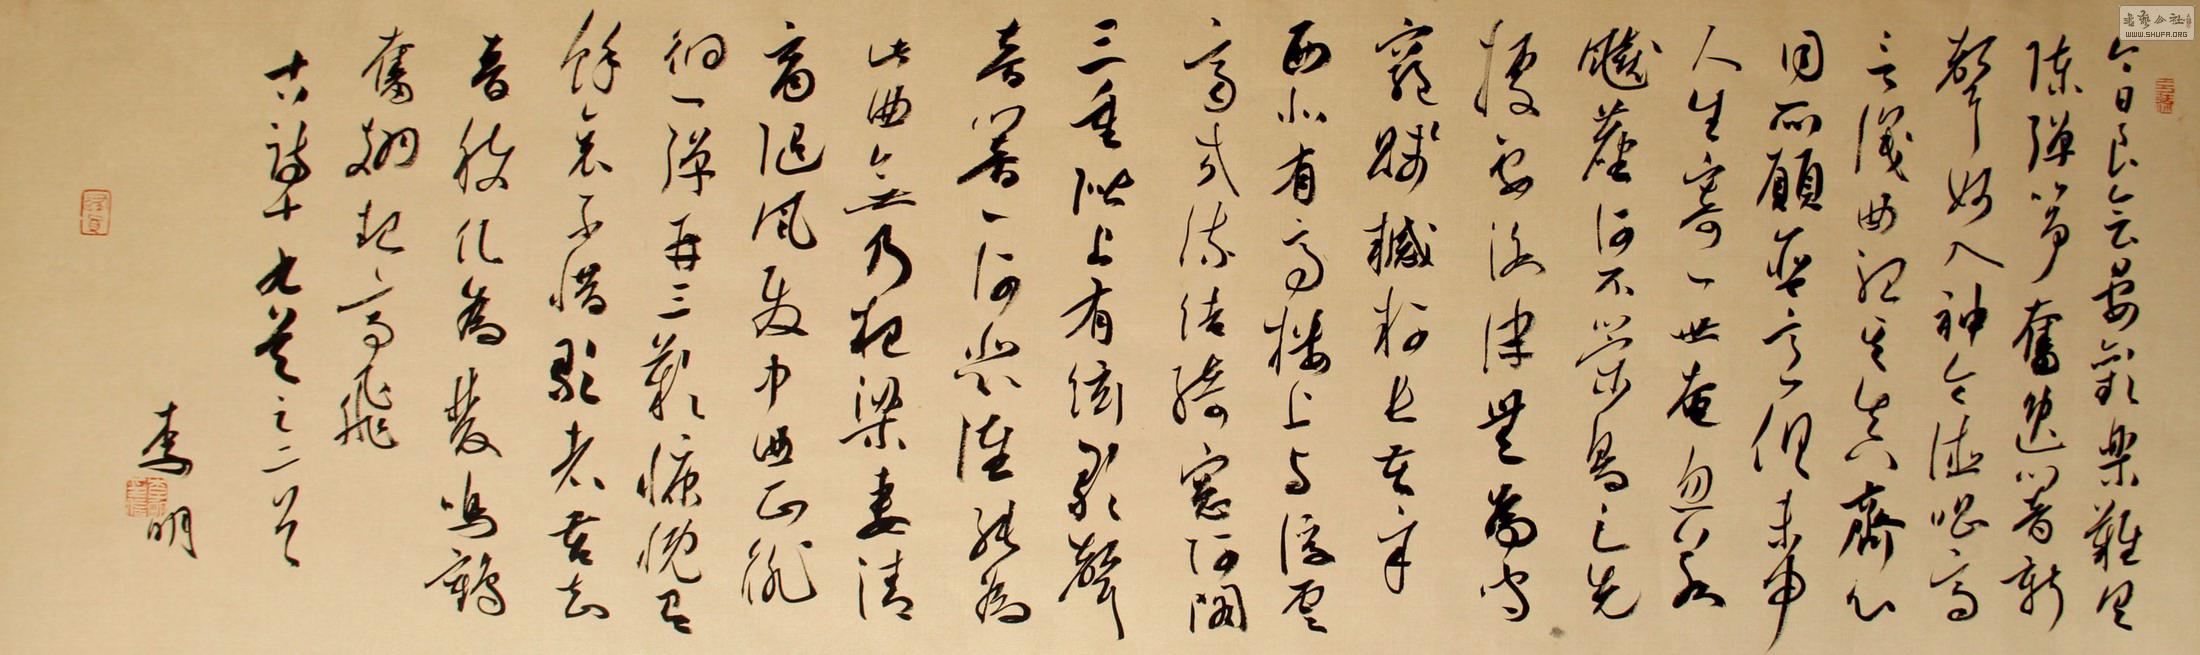 今日良宴會歡樂難具
陳彈箏奮逸響新
聲妙入神令德唱高
言識曲聽其真齊心
同所願含意俱未申
人生寄一世奄忽若
飆塵何不策高足先
據要路津無為守
窮賤轗軻長苦辛
西北有高樓上與浮雲
齊交疏結綺窗阿閣
三重階上有弦歌聲
音響一何悲誰能為
此曲無乃杞梁妻清
商隨風發中曲正徘
徊一彈再三歎慷慨有
餘哀不惜歌者苦知
音稀化為雙鳴鶴
奮翅起高飛
古詩十九首之二首
李明
書藝公社
WWW.SHUFA.ORG